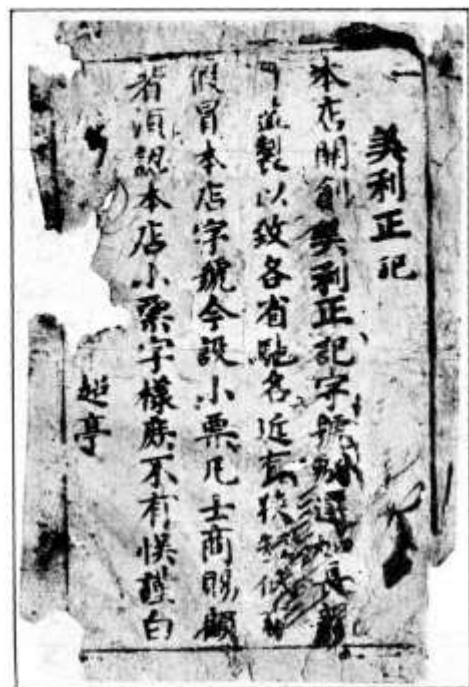 美利正記
本店開創美利正記字號選加長
製以致各省馳名近有
假冒本店字號今設小票凡士商賜顧
者須認本店小票字樣庶不有悞謹白
趂亭